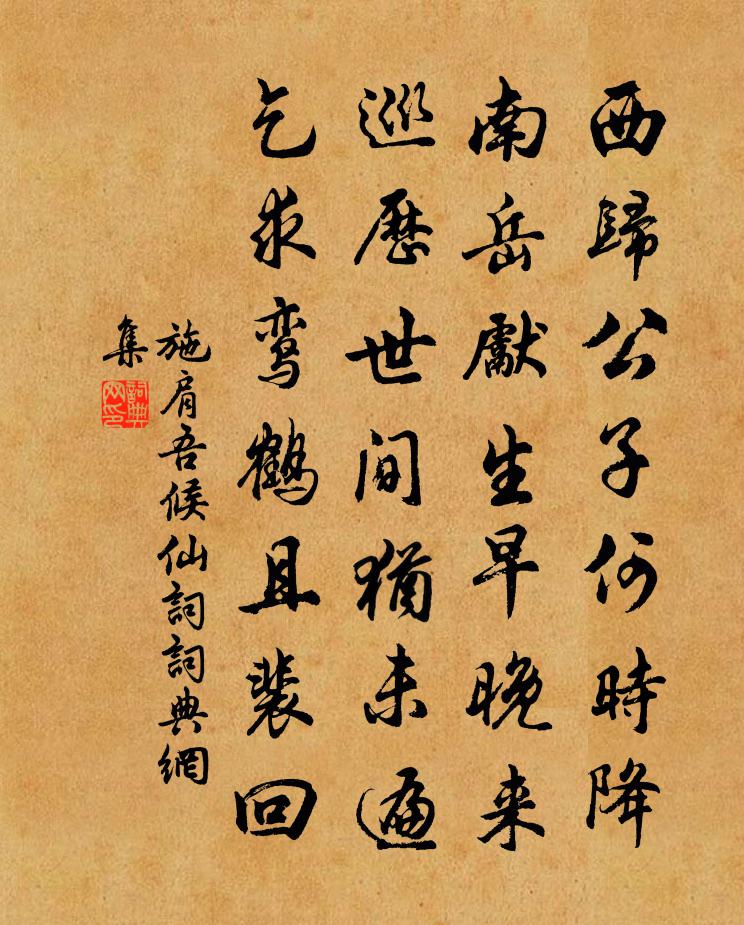 西歸公子何時降
南岳獻生早晚来
巡歷世间猶未遍
乞求鸾鹤且裴回
施肩吾候仙詞詞典網
集
詞典
网印